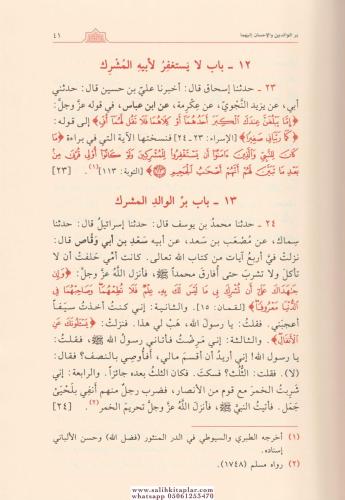 بر الوالدين والإحسان إليهما
٤١
١٢ - باب لا يَستغفِرُ لأبيهِ المُشْرِك
٢٣ - حدثنا إسحاق قال: أخبرنا عليّ بن حسين قال: حدثني
أبي، عن يزيد النَّحْويّ، عن عِكْرِمة، عن ابن عباس، في قوله عزَّ وجلَّ:
﴿إِمَّا يَبْلُغَنَّ عِندَكَ الْكِبَرَ أَحَدُهُمَا أَوْ كِلَاهُمَا فَلَا تَقُل لَّهُمَا أُفٍّ﴾ إلى قوله:
﴿كَمَا رَبَّيَانِي صَغِيرًا﴾ [الإسراء: ٢٣ - ٢٤] فنسختها الآية التي في براءة ﴿مَا
كَانَ لِلنَّبِيِّ وَالَّذِينَ ءَامَنُوا أَن يَسْتَغْفِرُوا لِلْمُشْرِكِينَ وَلَوْ كَانُوا أُولِي قُرْبَى مِنْ
بَعْدِ مَا تَبَيَّنَ لَهُمْ أَنَّهُمْ أَصْحَابُ الْجَحِيمِ﴾ [التوبة: ١١٣](١). [٢٣]
١٣ - باب برُّ الوالدِ المشرك
٢٤ - حدثنا محمد بن يوسف قال: حدثنا إسرائيلُ قال: حدثنا
سِماك، عن مُصْعَب بن سَعد، عن أبيه سَعْدِ بن أبي وَقَّاص قال:
نزلتْ فيَّ أربعُ آياتٍ من كتاب الله تعالى. كانتْ أمِّي حلفتْ أن لا
تأكلَ ولا تشربَ حتى أفارقَ محمداً ﷺ، فأنزل اللَّهُ عزَّ وجلَّ: ﴿وَإِن
جَاهَدَاكَ عَلَىٰ أَن تُشْرِكَ بِي مَا لَيْسَ لَكَ بِهِ عِلْمٌ فَلَا تُطِعْهُمَا وَصَاحِبْهُمَا فِي
الدُّنْيَا مَعْرُوفًا﴾ [لقمان: ١٥]. والثانية: إني كنتُ أخذتُ سَيفاً
أعجبَني. فقلتُ: يا رسولَ الله، هَبْ لي هذا. فنزلتْ: ﴿يَسْأَلُونَكَ عَنِ
الْأَنفَالِ﴾. والثالثة: إني مَرِضْتُ فأتاني رسولُ الله ﷺ، فقلتُ:
يا رسولَ الله! إني أريدُ أن أقسمَ مالي، أفأُوصِي بالنصف؟ فقال:
(لا). فقلت: الثُّلُث؟ فسكتَ. فكان الثلثُ بعده جائزاً. والرابعة: إني
شربتُ الخمرَ مع قومٍ من الأنصار، فضرب رجلٌ منهم أَنفِي بِلَحْيَيْ
جَمَل. فأتيتُ النبيَّ ﷺ، فأنزلَ اللَّهُ عزَّ وجلَّ تحريمَ الخمر(٢). [٢٤]
(١) أخرجه الطبري والسيوطي في الدر المنثور (فضل الله) وحسن الألباني
إسناده.
(٢) رواه مسلم (١٧٤٨).
www.salihkitaplar.com
whatsapp 05061253470